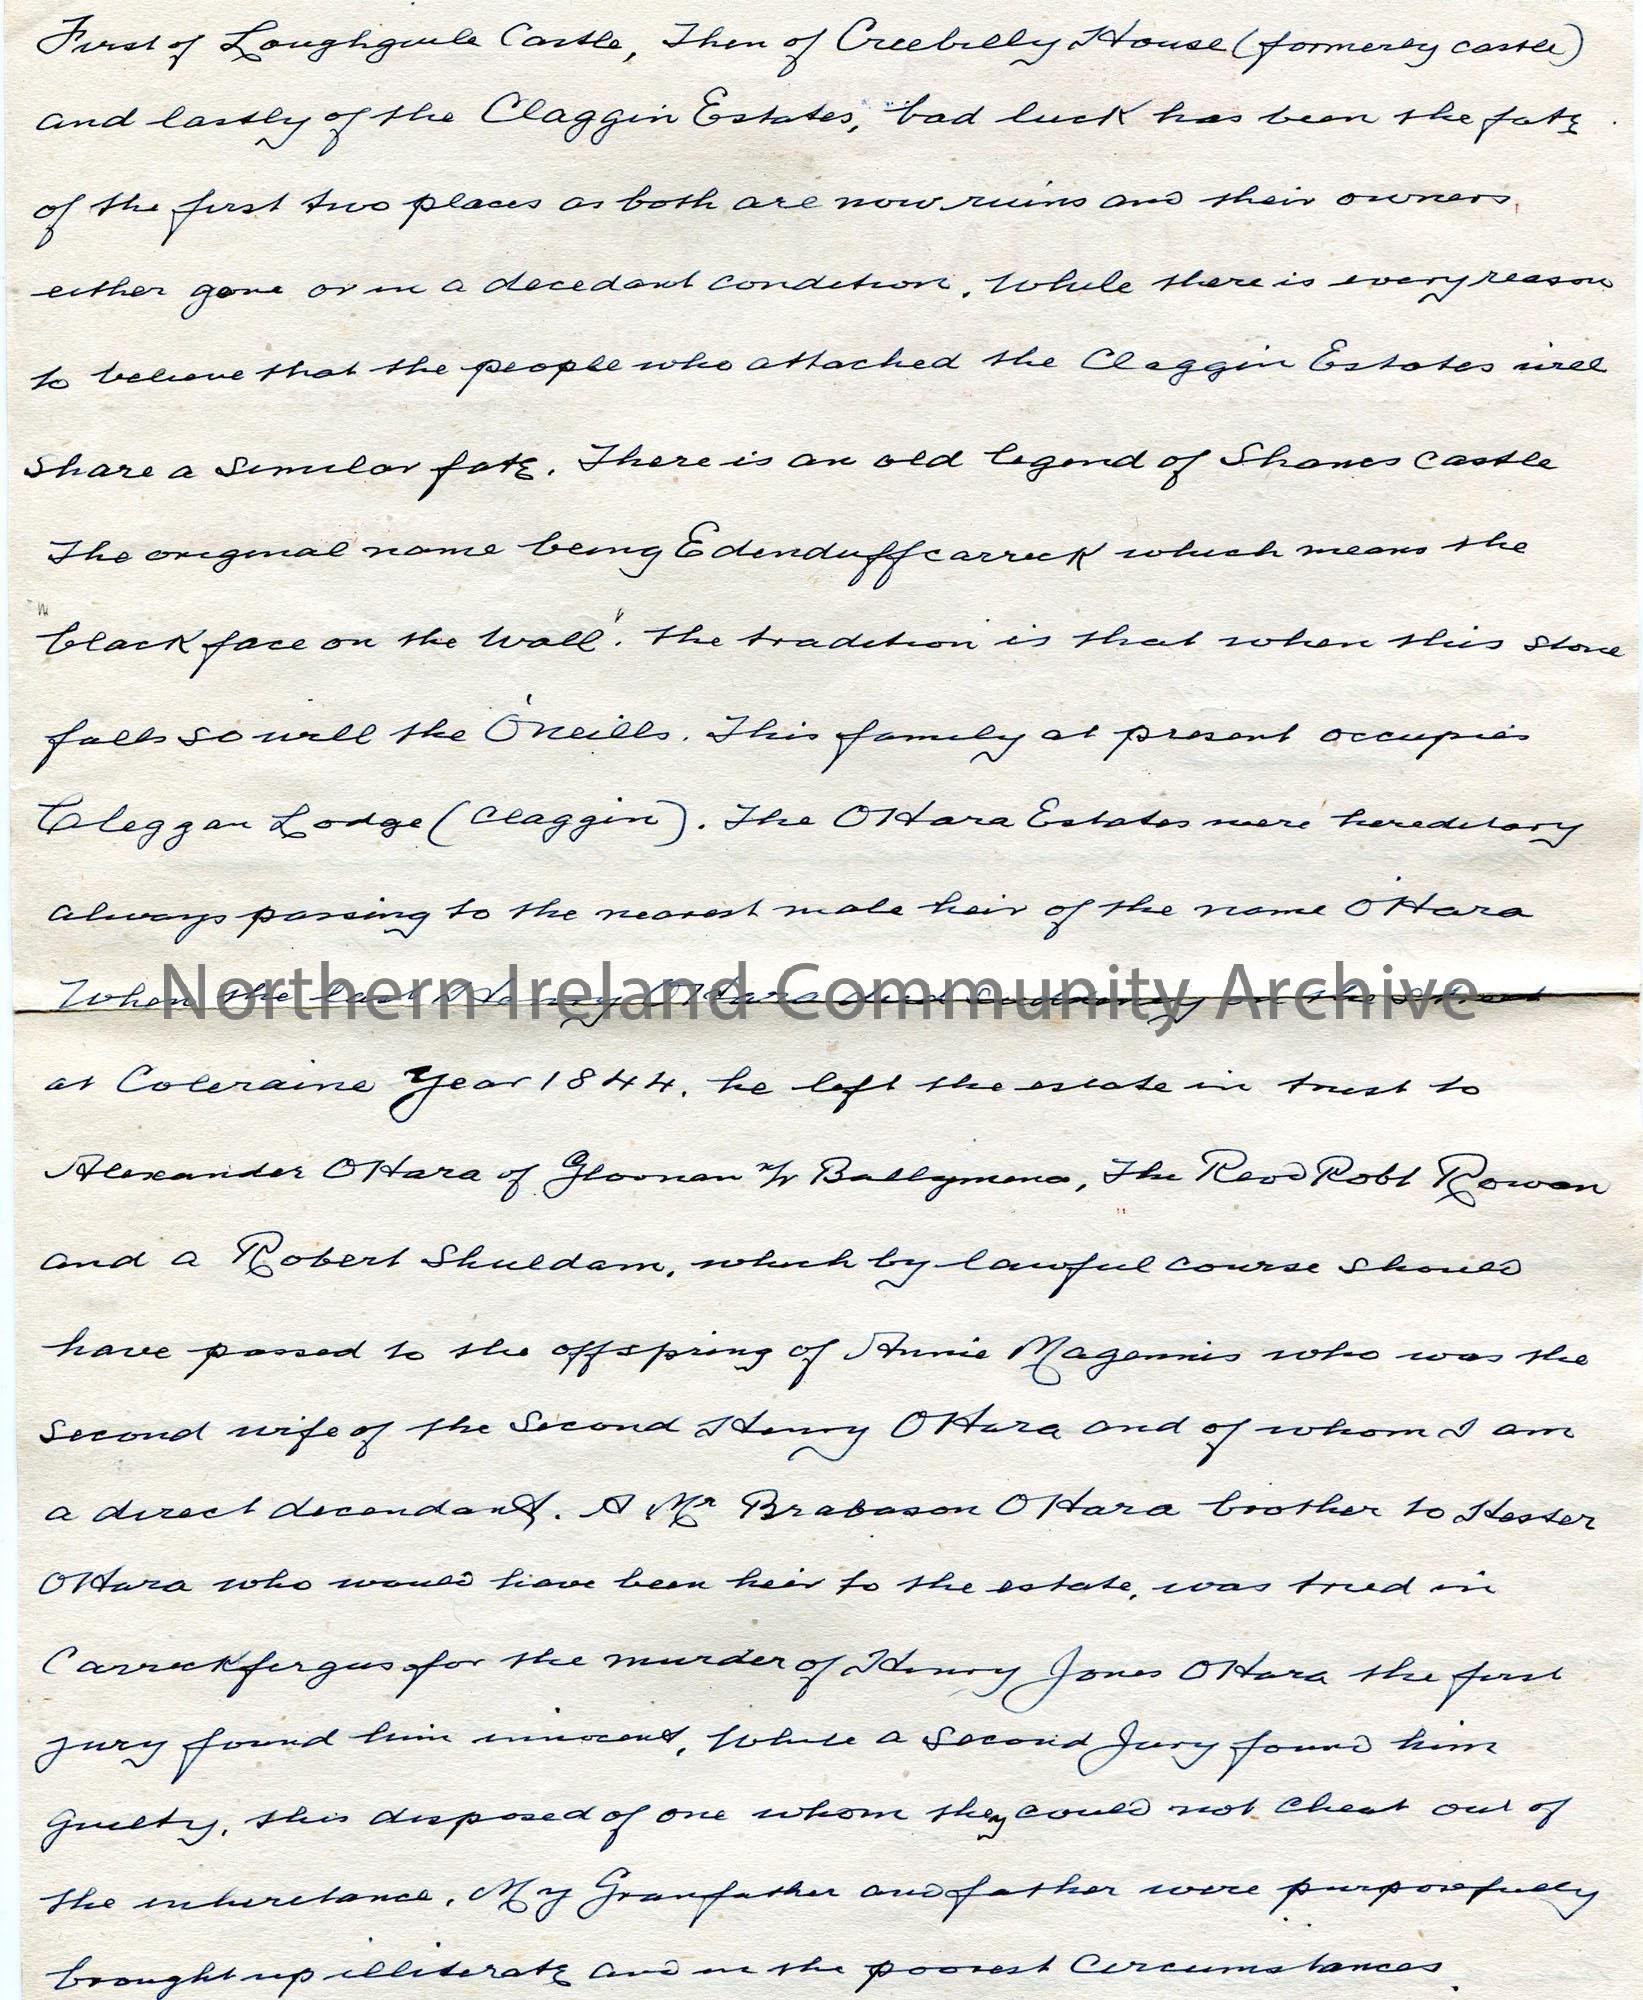 First of Loughguile Castle, Then of Creebilly House (formerly castle)
and lastly of the Claggin Estates, bad luck has been the fate
of the first two places as both are now ruins and their owners
either gone or in a decedant condition. While there is every reason
to believe that the people who attached the Claggin Estates will
share a similar fate. There is an old legend of Shanes Castle
The original name being Edenduffcarrick which means the
"black face on the Wall". The tradition is that when this stone
falls so will the O'Neills. This family at present occupies
Cleggan Lodge (Claggin). The OHara Estates were hereditary
always passing to the nearest male heir of the name O'Hara
When the last Henry OHara died suddenly on the street
Northern Ireland Community Archive
at Coleraine Year 1844, he left the estate in trust to
Alexander OHara of Gloonan Nr Ballymena, The Revd Robt Rowan
and a Robert Shuldam, which by lawful course should
have passed to the offspring of Annie Magennis who was the
second wife of the Second Henry OHara and of whom I am
a direct decendant. A Mr Brabason OHara brother to Hester
OHara who would have been heir to the estate, was tried in
Carrickfergus for the murder of Henry Jones OHara the first
jury found him innocent, While a second Jury found him
guilty, this disposed of one whom they could not cheat out of
the inheritance. My Granfather and father were purposefully
brought up illiterate and in the poorest circumstances.